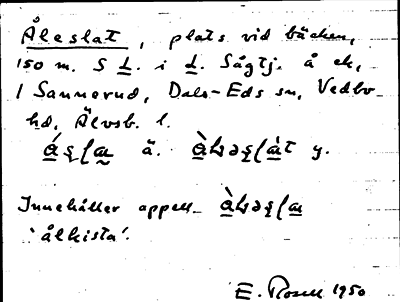 Åleslat, plats vid bäcken,
150 m. S d. i d. Sågtj. å ek,
1 Sannerud, Dals-Eds sn, Vedbo
hd, Älvsb. l.
ä. y.
Innehåller appell.
'ålkista'.
E. Rosell 1950